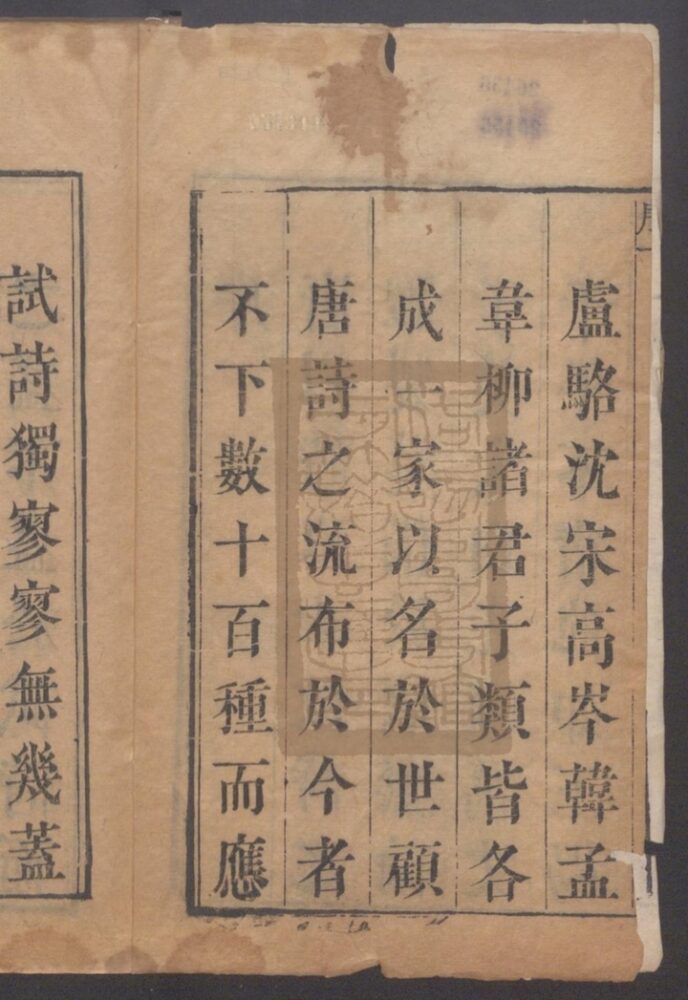 盧駱沈宋高岑韓孟
韋柳諸君子類皆各
成一家以名於世顧
唐詩之流布於今者
不下數十百種而應
試詩獨寥寥無幾蓋